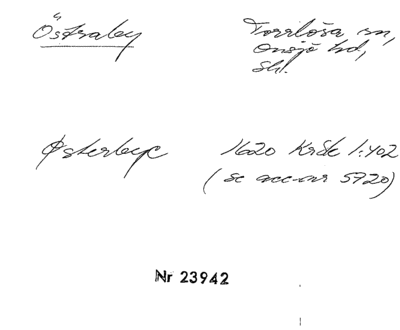 Östraby
Torrlösa sn,
Onsjö hd,
Skl.
Østerbye
1620 KrSk 1:402
(se acc-nr 5720)
Nr 23942